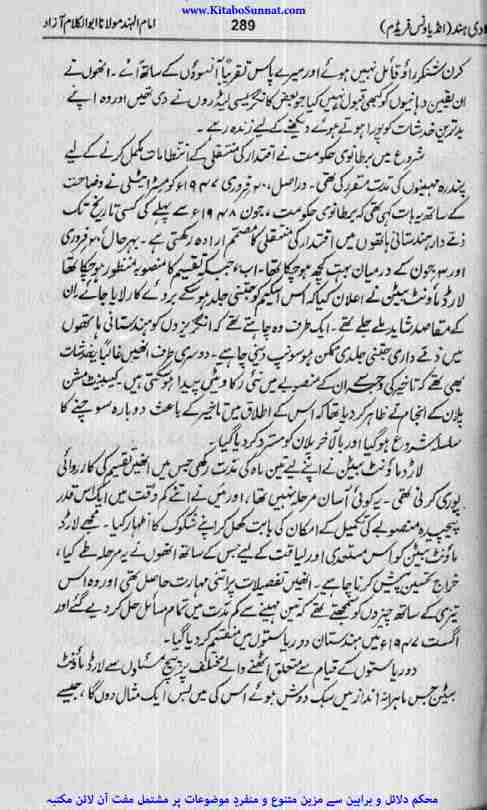 www.KitaboSunnat.com
دی ہند (انڈیا ونس فریڈم) 289 امام الہند مولانا ابوالکلام آزاد
کرن شنکر راؤ قائل نہیں ہوئے اور میرے پاس تقریباً آنسوؤں کے ساتھ آئے۔ انھوں نے
ان یقین دہانیوں کو کبھی قبول نہیں کیا جو بعض کانگریسی لیڈروں نے دی تھیں اور وہ اپنے
بدترین خدشات کو پورا ہوتے ہوئے دیکھنے کے لیے زندہ رہے۔
شروع میں برطانوی حکومت نے اقتدار کی منتقلی کے انتظامات مکمل کرنے کے لیے
پندرہ مہینوں کی مدت مقرر کی تھی۔ دراصل، ۲۰ فروری ۱۹۴۷ء کو مسٹر ایٹلی نے وضاحت
کے ساتھ یہ بات کہی تھی کہ برطانوی حکومت، جون ۱۹۴۸ء سے پہلے کی کسی تاریخ تک
ذمے دار ہندستانی ہاتھوں میں اقتدار کی منتقلی کا مصمم ارادہ رکھتی ہے۔ بہرحال ۲۰ فروری
اور ۳ جون کے درمیان بہت کچھ ہو چکا تھا۔ اب، جب کہ تقسیم کا منصوبہ منظور ہو چکا تھا
لارڈ ماؤنٹ بیٹن نے اعلان کیا کہ اس اسکیم کو جتنی جلد ہو سکے بروئے کار لایا جائے۔ ان
کے مقاصد شاید ملے جلے تھے۔ ایک طرف وہ چاہتے تھے کہ انگریزوں کو ہندستانی ہاتھوں
میں ذمے داری جتنی جلدی ممکن ہو سونپ دینی چاہیے۔ دوسری طرف انھیں غالباً یہ خدشات
بھی تھے کہ تاخیر کی وجہ سے ان کے منصوبے میں نئی رکاوٹیں پیدا ہو سکتی ہیں۔ کیبینیٹ مشن
پلان کے انجام نے ظاہر کر دیا تھا کہ اس کے اطلاق میں تاخیر کے باعث دوبارہ سوچنے کا
سلسلہ شروع ہو گیا اور بالآخر پلان کو مسترد کر دیا گیا۔
لارڈ ماؤنٹ بیٹن نے اپنے لیے تین ماہ کی مدت رکھی جس میں انھیں تقسیم کی کارروائی
پوری کرنی تھی۔ یہ کوئی آسان مرحلہ نہیں تھا، اور میں نے اتنے کم وقت میں ایک اس قدر
پیچیدہ منصوبے کی تکمیل کے امکان کی بابت کھل کر اپنے شکوک کا اظہار کیا۔ مجھے لارڈ
ماؤنٹ بیٹن کو اس مستعدی اور لیاقت کے لیے جس کے ساتھ انھوں نے یہ مرحلہ طے کیا،
خراج تحسین پیش کرنا چاہیے۔ انھیں تفصیلات پر اتنی مہارت حاصل تھی اور وہ اس
تیزی کے ساتھ چیزوں کو سمجھتے تھے کہ تین مہینے سے کم مدت میں تمام مسائل حل کر دیے گئے اور
اگست ۱۹۴۷ء میں ہندستان دو ریاستوں میں منقسم کر دیا گیا۔
دو ریاستوں کے قیام سے متعلق اٹھنے والے مختلف پر پیچ مسئلوں سے لارڈ ماؤنٹ
بیٹن جس ماہرانہ انداز میں سبک دوش ہوئے اس کی میں بس ایک مثال دوں گا، جیسے
محکم دلائل و براہین سے مزین متنوع و منفرد موضوعات پر مشتمل مفت آن لائن مکتبہ